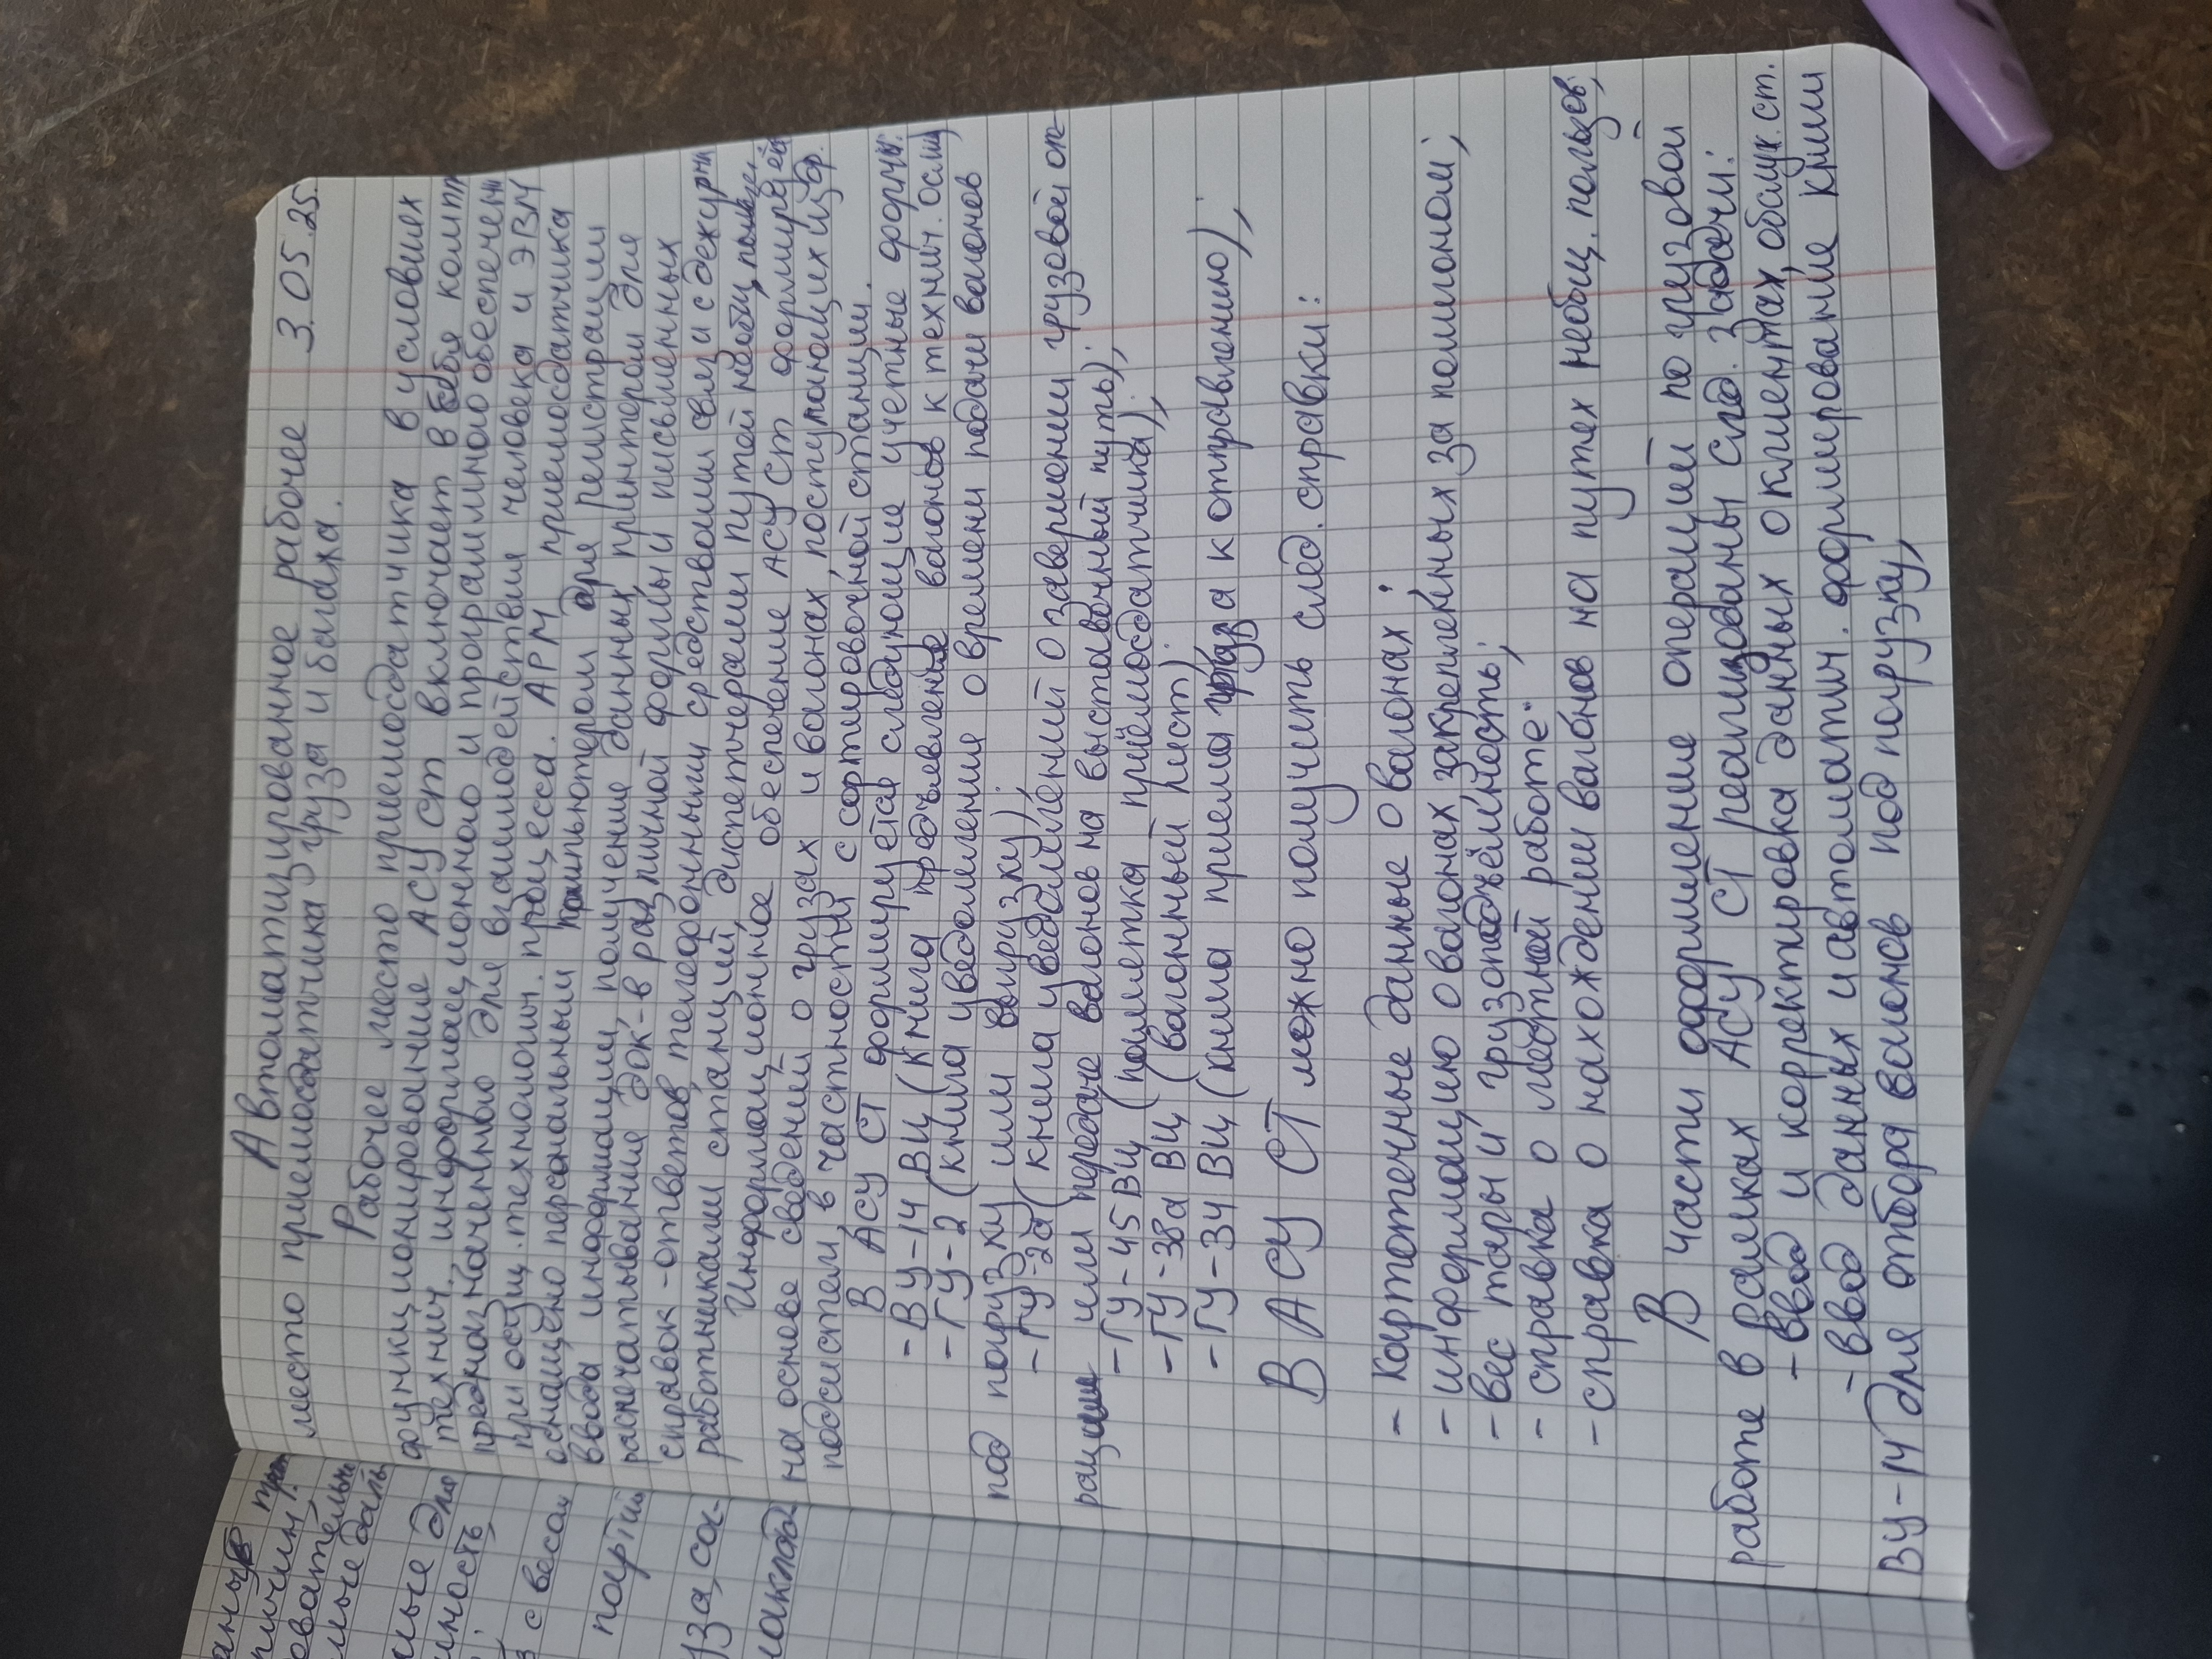 Автоматизированное рабочее 3.05.25.
место приемосдатчика груза и багажа.
Рабочее место приемосдатчика в условиях
функционирование АСУ ст включает в себя компл
технич. информационного и программного обеспечени
предназначенную для взаимодействия человека и ЭВМ
при осущ. технологич. процесса. АРМ приемосдатчика
оснащено персональным компьютером для регистрации
ввода информации, получение данных, принтером для
распечатывание док-в различной формы и письменных
справок-ответов, телефонными средствами связи с дежурны
работниками станций, диспетчерами путей необщ. польз.
Информационное обеспечение АСУ СТ формируется
на основе сведений о грузах и вагонах поступающих из др.
подсистем, в частности с сортировочной станции.
В АСУ СТ формируется следующие учетные формы:
- ВУ-14 ВЦ (книга предъявления вагонов к технич. осмотру)
- ГУ-2 (книга уведомления о времени подачи вагонов
под погрузку или выгрузку);
- ГУ-2а (книга уведомлений о завершении грузовой оп-
рации или передаче вагонов на выставочный путь);
- ГУ-45 ВЦ (памятка приёмосдатчика);
- ГУ-38а ВЦ (вагонный лист);
- ГУ-34 ВЦ (книга приема груза к отправлению);
В АСУ СТ можно получить след. справки:
- Картотечные данные о вагонах;
- информацию о вагонах закрепленных за полигоном;
- вес тары и грузоподъёмность;
- справка о местной работе"
- справка о нахождении вагонов на путях необщ. пользов;
В части оформление операций по грузовой
работе в рамках АСУ СТ реализованы след. задачи:
- ввод и корректировка данных о клиентах, обслуж. ст.
- ввод данных и автоматич. формирование книги
ВУ-14 для отбора вагонов под погрузку,
с весом
партий